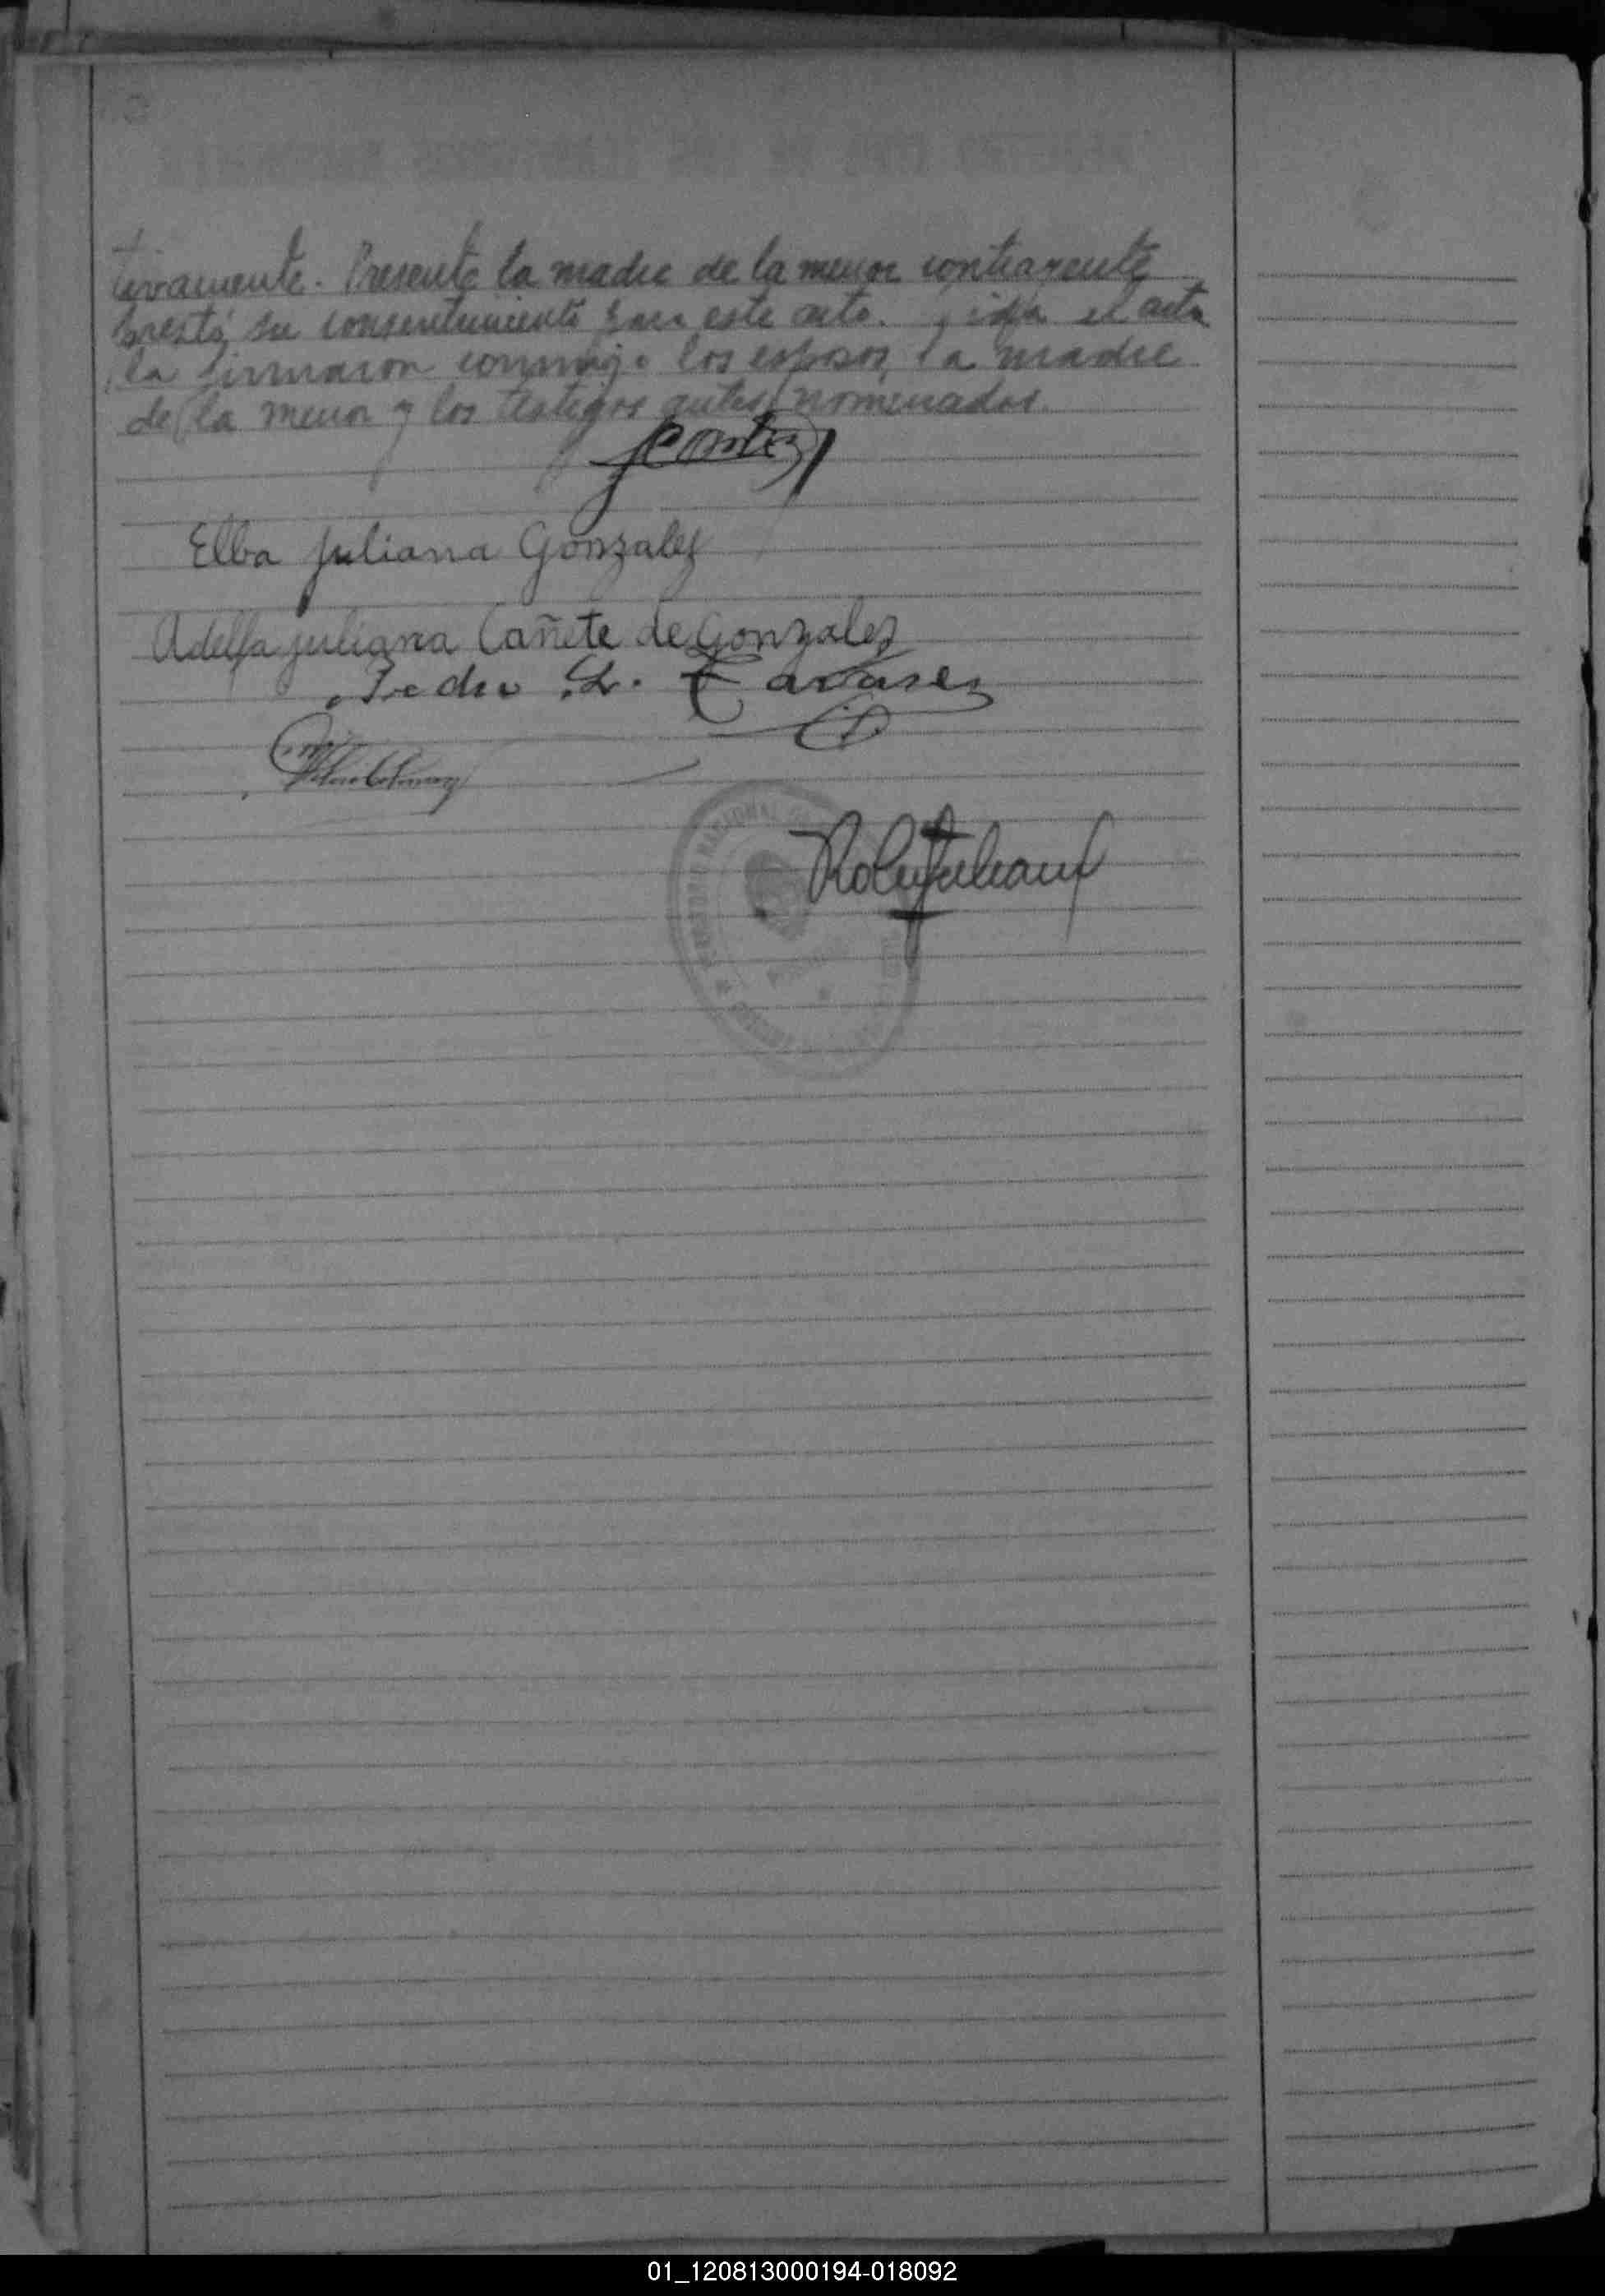 tivamente. Presente la madre de la menor contrayente
prestó su consentimiento para este acto. el acta
la firmaron conmigo los esposos, la madre
de la menor y los testigos antes nominados.
Elba Juliana Gonzalez
Adelfa Juliana Cañete de Gonzalez
Pedro L. Tavarez
01_120813000194-018092